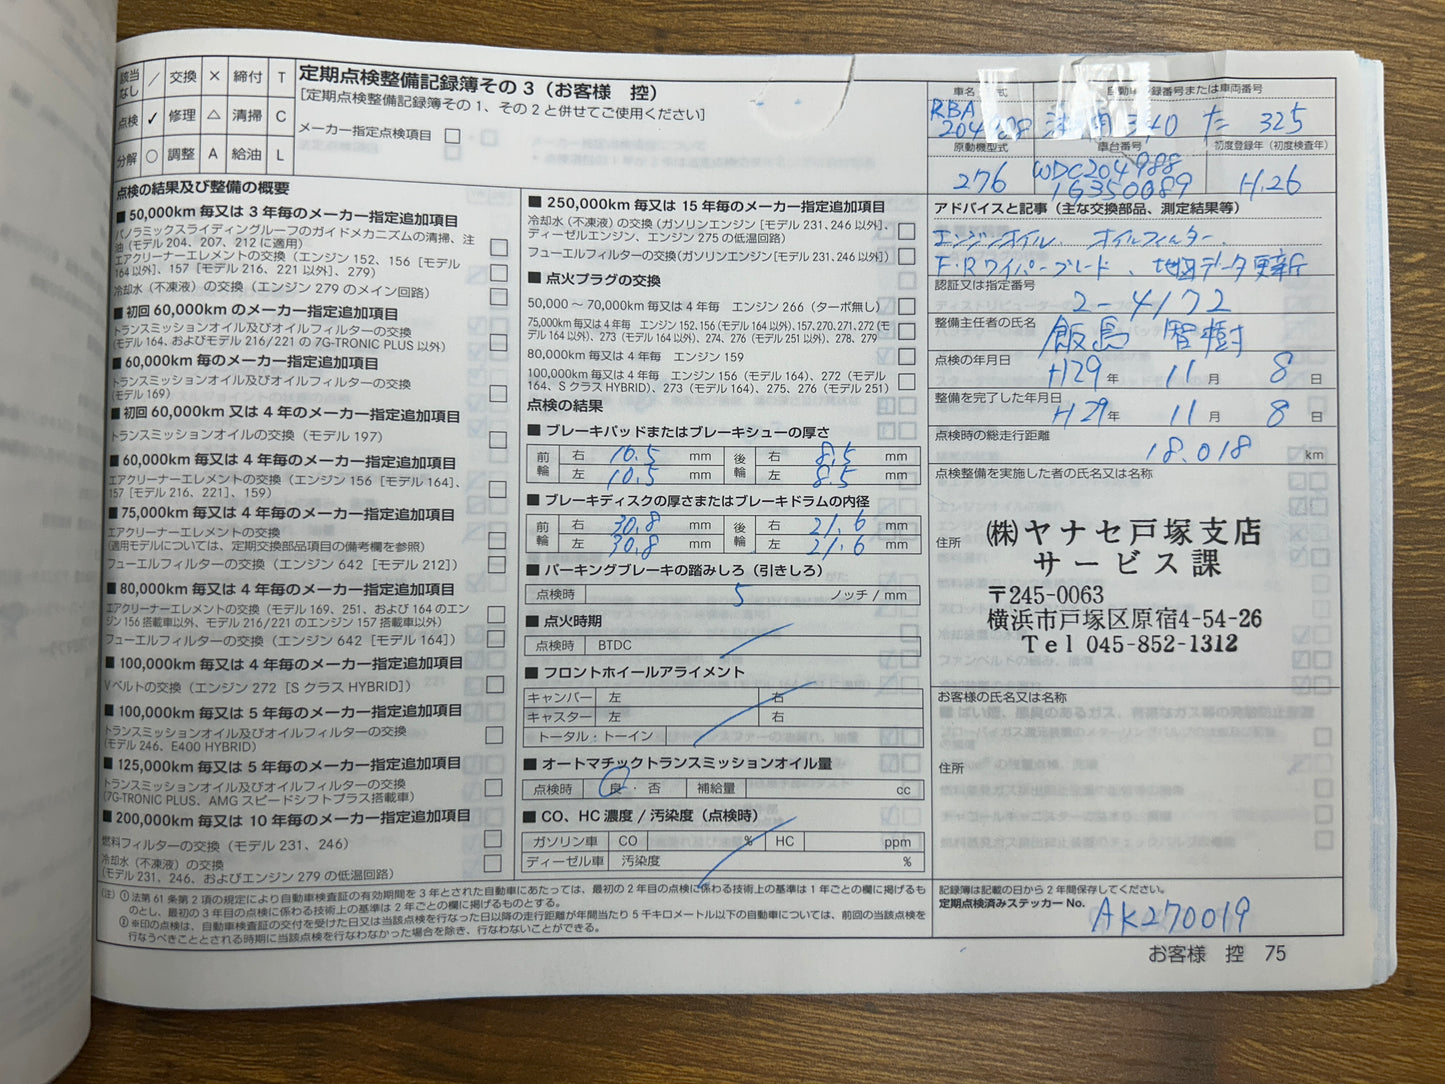 該当なし ／ 交換 ✕ 締付 T
点検 ✓ 修理 △ 清掃 C
分解 ○ 調整 A 給油 L
定期点検整備記録簿その 3（お客様 控）
［定期点検整備記録簿その 1、その 2 と併せてご使用ください］
メーカー指定点検項目 □
点検の結果及び整備の概要
■ 50,000km 毎又は 3 年毎のメーカー指定追加項目
パノラミックスライディングルーフのガイドメカニズムの清掃、注
油（モデル 204、207、212 に適用）
エアクリーナーエレメントの交換（エンジン 152、156［モデル
164 以外］、157［モデル 216、221 以外］、279）
冷却水（不凍液）の交換（エンジン 279 のメイン回路）
■ 初回 60,000km のメーカー指定追加項目
トランスミッションオイル及びオイルフィルターの交換
（モデル 164、およびモデル 216/221 の 7G-TRONIC PLUS 以外）
■ 60,000km 毎のメーカー指定追加項目
トランスミッションオイル及びオイルフィルターの交換
（モデル 169）
■ 初回 60,000km 又は 4 年毎のメーカー指定追加項目
トランスミッションオイルの交換（モデル 197）
■ 60,000km 毎又は 4 年毎のメーカー指定追加項目
エアクリーナーエレメントの交換（エンジン 156［モデル 164］、
157［モデル 216、221］、159）
■ 75,000km 毎又は 4 年毎のメーカー指定追加項目
エアクリーナーエレメントの交換
（適用モデルについては、定期交換部品項目の備考欄を参照）
フューエルフィルターの交換（エンジン 642［モデル 212］）
■ 80,000km 毎又は 4 年毎のメーカー指定追加項目
エアクリーナーエレメントの交換（モデル 169、251、および 164 のエン
ジン 156 搭載車以外、モデル 216/221 のエンジン 157 搭載車以外）
フューエルフィルターの交換（エンジン 642［モデル 164］）
■ 100,000km 毎又は 4 年毎のメーカー指定追加項目
V ベルトの交換（エンジン 272［S クラス HYBRID］）
■ 100,000km 毎又は 5 年毎のメーカー指定追加項目
トランスミッションオイル及びオイルフィルターの交換
（モデル 246、E400 HYBRID）
■ 125,000km 毎又は 5 年毎のメーカー指定追加項目
トランスミッションオイル及びオイルフィルターの交換
（7G-TRONIC PLUS、AMG スピードシフトプラス搭載車）
■ 200,000km 毎又は 10 年毎のメーカー指定追加項目
燃料フィルターの交換（モデル 231、246）
冷却水（不凍液）の交換
（モデル 231、246、およびエンジン 279 の低温回路）
■ 250,000km 毎又は 15 年毎のメーカー指定追加項目
冷却水（不凍液）の交換（ガソリンエンジン［モデル 231、246 以外］、
ディーゼルエンジン、エンジン 275 の低温回路）
フューエルフィルターの交換（ガソリンエンジン［モデル 231、246 以外］）
■ 点火プラグの交換
50,000 ～ 70,000km 毎又は 4 年毎 エンジン 266（ターボ無し）
75,000km 毎又は 4 年毎 エンジン 152、156（モデル 164 以外）、157、270、271、272（モ
デル 164 以外）、273（モデル 164 以外）、274、276（モデル 251 以外）、278、279
80,000km 毎又は 4 年毎 エンジン 159
100,000km 毎又は 4 年毎 エンジン 156（モデル 164）、272（モデル
164、S クラス HYBRID）、273（モデル 164）、275、276（モデル 251）
点検の結果
■ ブレーキパッドまたはブレーキシューの厚さ
前輪 右 10.5 mm 後輪 右 8.5 mm
左 10.5 mm 左 8.5 mm
■ ブレーキディスクの厚さまたはブレーキドラムの内径
前輪 右 30.8 mm 後輪 右 21.6 mm
左 30.8 mm 左 21.6 mm
■ パーキングブレーキの踏みしろ（引きしろ）
点検時 5 ノッチ / mm
■ 点火時期
点検時 BTDC
■ フロントホイールアライメント
キャンバー 左 右
キャスター 左 右
トータル・トーイン
■ オートマチックトランスミッションオイル量
点検時 良・否 補給量 cc
■ CO、HC 濃度 / 汚染度（点検時）
ガソリン車 CO % HC ppm
ディーゼル車 汚染度 %
（注）① 法第 61 条第 2 項の規定により自動車検査証の有効期間を 3 年とされた自動車にあたっては、最初の 2 年目の点検に係わる技術上の基準は 1 年ごとの欄に掲げるも
のとし、最初の 3 年目の点検に係わる技術上の基準は 2 年ごとの欄に掲げるものとする。
② ※印の点検は、自動車検査証の交付を受けた日又は当該点検を行なった日以降の走行距離が年間当たり 5 千キロメートル以下の自動車については、前回の当該点検を
行なうべきこととされる時期に当該点検を行なわなかった場合を除き、行なわないことができる。
車名 式 自動車 録番号または車両番号
RBA
204 340 た 325
原動機型式 車台番号 初度登録年（初度検査年）
276 WDC204988 H.26
1G350089
アドバイスと記事（主な交換部品、測定結果等）
エンジンオイル、オイルフィルター、
F・Rワイパーブレード、地図データ更新
認証又は指定番号
2-4172
整備主任者の氏名
飯島 智樹
点検の年月日
H29 年 11 月 8 日
整備を完了した年月日
H29 年 11 月 8 日
点検時の総走行距離
18,018 km
点検整備を実施した者の氏名又は名称
㈱ヤナセ戸塚支店
住所
サービス課
〒245-0063
横浜市戸塚区原宿4-54-26
Tel 045-852-1312
お客様の氏名又は名称
住所
記録簿は記載の日から 2 年間保存してください。
定期点検済みステッカー No.
AK270019
お客様 控 75